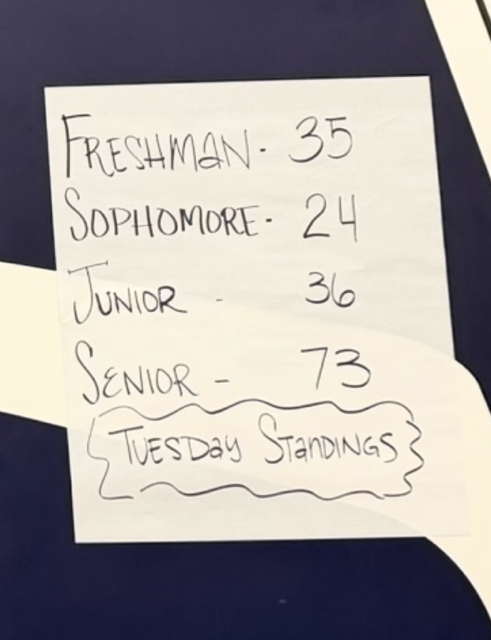 FRESHMAN - 35
SOPHOMORE - 24
JUNIOR - 36
SENIOR - 73
TUESDAY STANDINGS